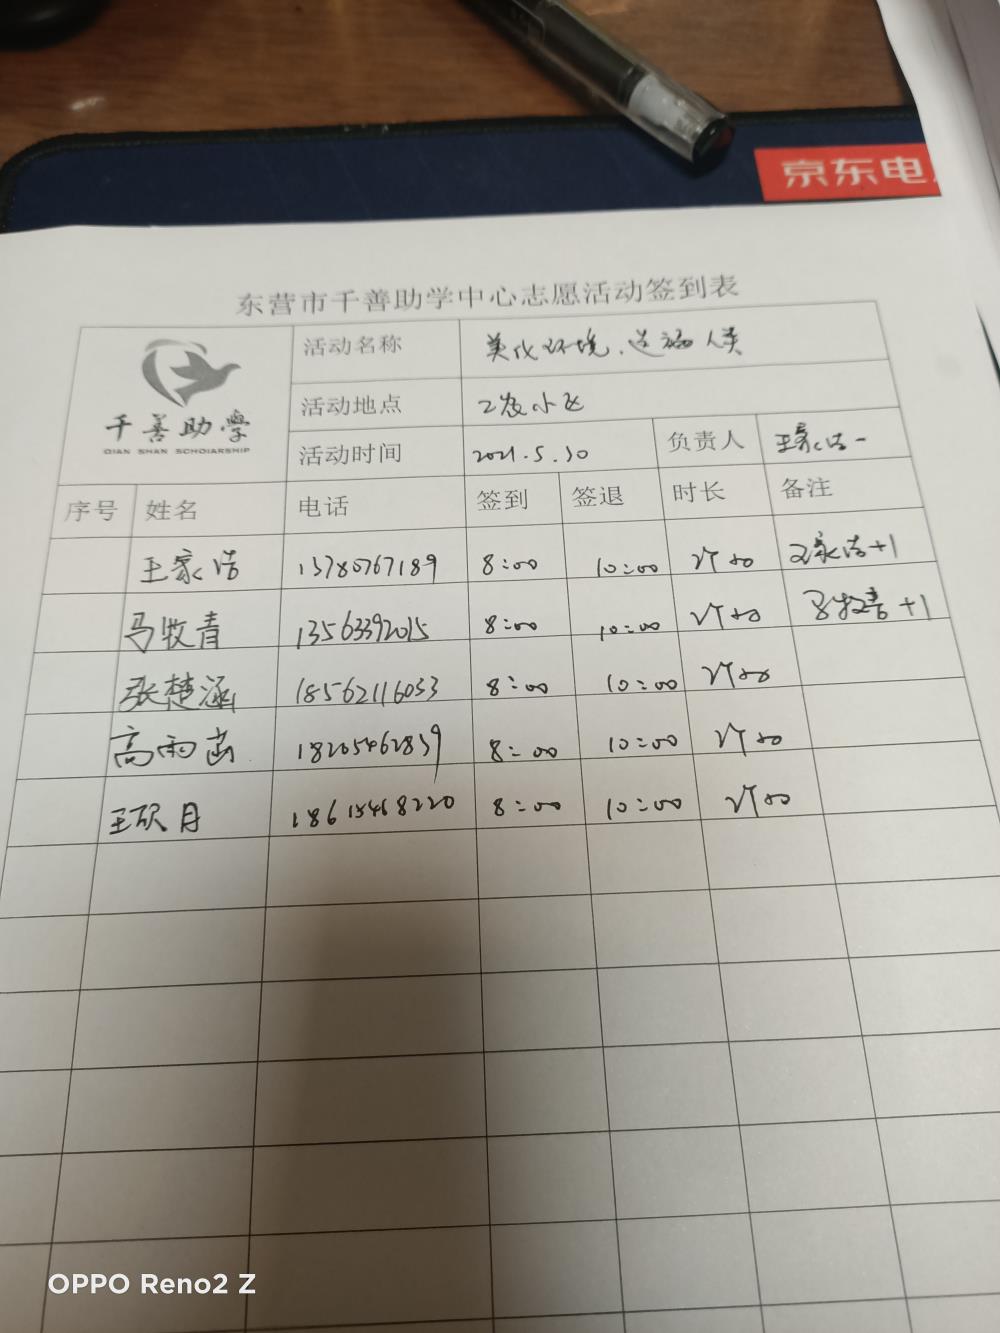 京东电
东营市千善助学中心志愿活动签到表
千善助學
QIAN SHAN SCHOIARSHIP
活动名称 美化环境、造福人类
活动地点
活动时间 2021.5.30 负责人 王家浩
序号 姓名 电话 签到 签退 时长 备注
王家浩 13780767189 8:00 10:00 王家浩+1
马牧青 13563392015 8:00 10:00 马牧青+1
张楚涵 18562116053 8:00 10:00
高雨茜 18205462839 8:00 10:00
王硕月 18615468220 8:00 10:00
OPPO Reno2 Z